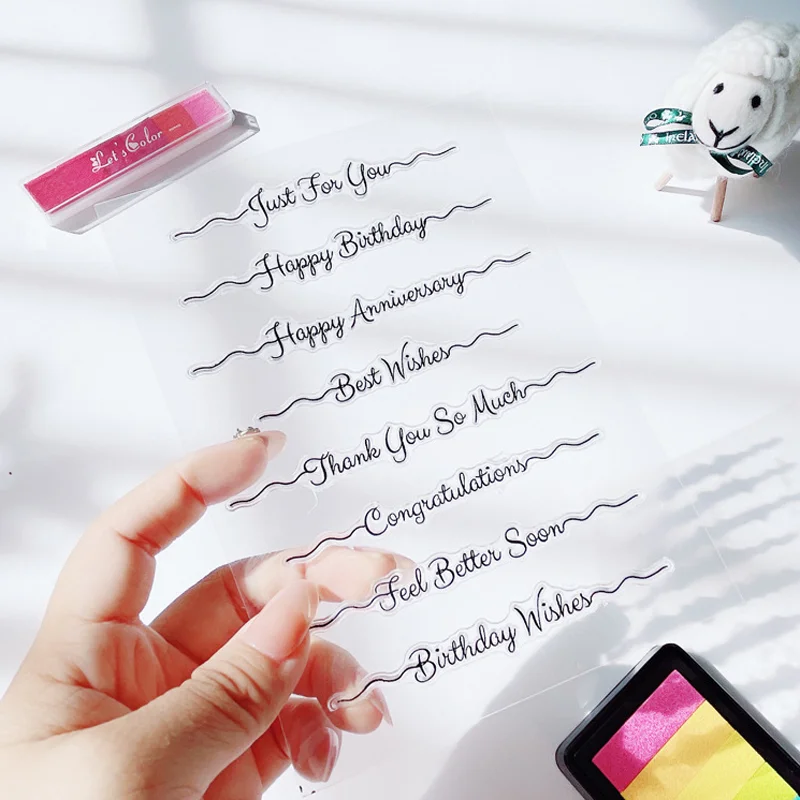 Let's Color
Just For You
Happy Birthday
Happy Anniversary
Best Wishes
Thank You So Much
Congratulations
Feel Better Soon
Birthday Wishes